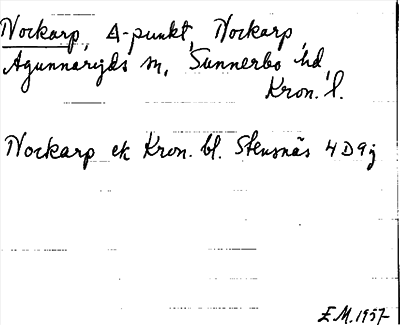 Nockarp, Δ-punkt, Nockarp,
Agunnaryds sn, Sunnerbo hd,
Kron. l.
Nockarp ek Kron. bl. Stensnäs 4D9j
E.M. 1957